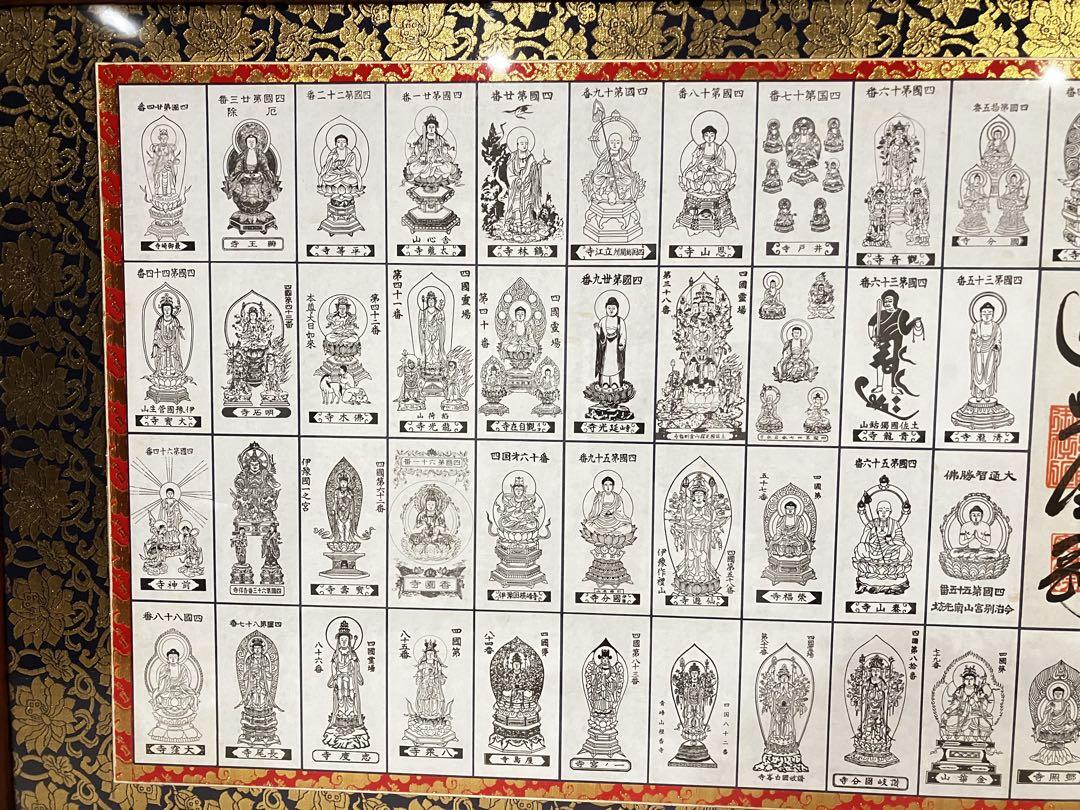 四國第拾五番
國分寺
四國第十六番
觀音寺
四国第十七番
井戸寺
四國第十八番
恩山寺
四國第十九番
立江寺
四國第廿番
鶴林寺
四國第廿一番
舍心山
太龍寺
四國第二十二番
平等寺
四國第廿三番
厄除
藥王寺
四國第廿四番
最御崎寺
四國第三十五番
清瀧寺
四國第三十六番
土佐國獨鈷山
青龍寺
四國靈場
第三十八番
四國第卅九番
寺山延光寺
四國靈場
第四十番
觀自在寺
四國靈場
第四十一番
稻荷山
龍光寺
第四十二番
本尊大日如來
佛木寺
四國第四十三番
明石寺
四國第四十四番
伊豫國菅生山
大寶寺
大通智勝佛
四國第五十五番
今治別宮山南光坊
四國第五十六番
泰山寺
四國第
五十七番
榮福寺
四國第五十八番
伊豫作禮山
仙遊寺
四國第五十九番
國分寺
四国才六十番
四國第六十一番
香園寺
四國第六十二番
伊豫國一之宮
寶壽寺
四國第六十三番吉祥寺
四國第六十四番
前神寺
郷照寺
四國第
七九番
金華山
四國第八拾番
讃岐國分寺
讃岐國白峯寺
四国八十二番
青峰山根香寺
四國第八十三番
一ノ宮寺
四國第
八十四番
屋島寺
四國第
八十五番
八栗寺
四國靈場
八十六番
志度寺
四國第八十七番
長尾寺
四國八十八番
大窪寺